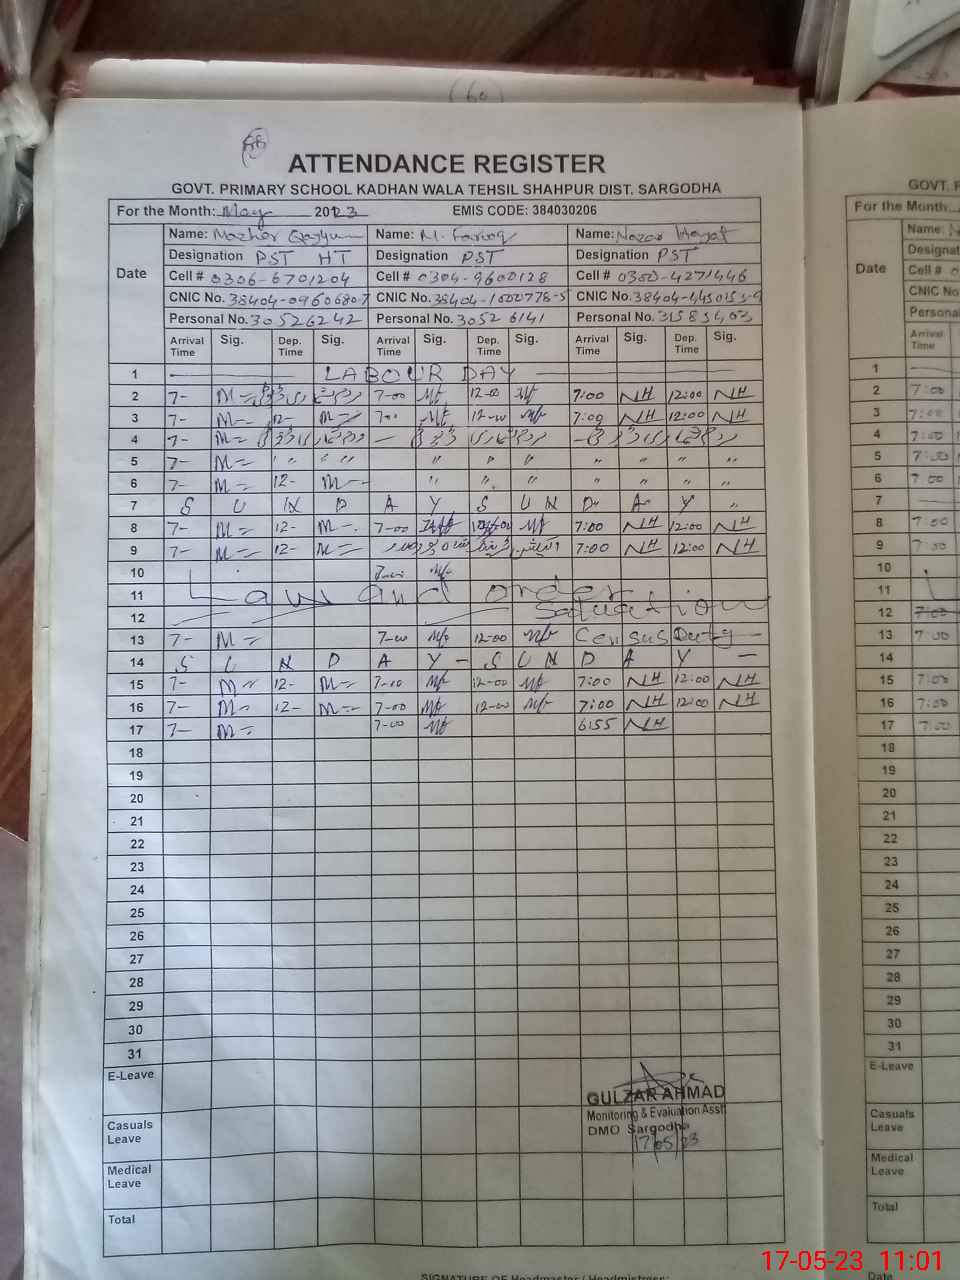 ATTENDANCE REGISTER
GOVT. PRIMARY SCHOOL KADHAN WALA TEHSIL SHAHPUR DIST. SARGODHA
For the Month: May 2023 EMIS CODE: 384030206
Date
Name: Mazhar Qayyum Name: M. Farooq Name: Nazar Hayat
Designation PST HT Designation PST Designation PST
Cell # 0306-6701204 Cell # 0304-9600128 Cell # 0300-4271446
CNIC No. CNIC No. CNIC No.
Personal No. 30526242 Personal No. 30526141 Personal No.
Arrival Time Sig. Dep. Time Sig. Arrival Time Sig. Dep. Time Sig. Arrival Time Sig. Dep. Time Sig.
1 LABOUR DAY
2 7- M 7-00 Mf 12-00 Mf 7:00 NH 12:00 NH
3 7- M 12- M 7-00 Mf 12-00 Mf 7:00 NH 12:00 NH
4 7- M
5 7- M " " " " " " " " " "
6 7- M 12- M " " " " " " "
7 S U N D A Y S U N D A Y "
8 7- M 12- M 7-00 Mf 7:00 NH 12:00 NH
9 7- M 12- M 7:00 NH 12:00 NH
10
11 Law and order
12 Satuation
13 7- M 7-00 Mf 12-00 Mf Census Duty
14 S U N D A Y - S U N D A Y -
15 7- M 12- M 7-00 Mf 12-00 Mf 7:00 NH 12:00 NH
16 7- M 12- M 7-00 Mf 12-00 Mf 7:00 NH 12:00 NH
17 7- M 7-00 Mf 6:55 NH
18
19
20
21
22
23
24
25
26
27
28
29
30
31
E-Leave
Casuals Leave
Medical Leave
Total
GULZAR AHMAD
Monitoring & Evaluation Asstt
DMO Sargodha
17/05/23
SIGNATURE OF Headmaster / Headmistress:
GOVT.
For the Month:
Name:
Date
Cell #
CNIC No.
Personal
Arrival Time
1
2 7:00
3 7:00
4 7:00
5 7:00
6 7:00
7
8 7:00
9 7:00
10
11
12 7:00
13 7:00
14
15 7:00
16 7:00
17 7:00
18
19
20
21
22
23
24
25
26
27
28
29
30
31
E-Leave
Casuals Leave
Medical Leave
Total
Date
17-05-23 11:01